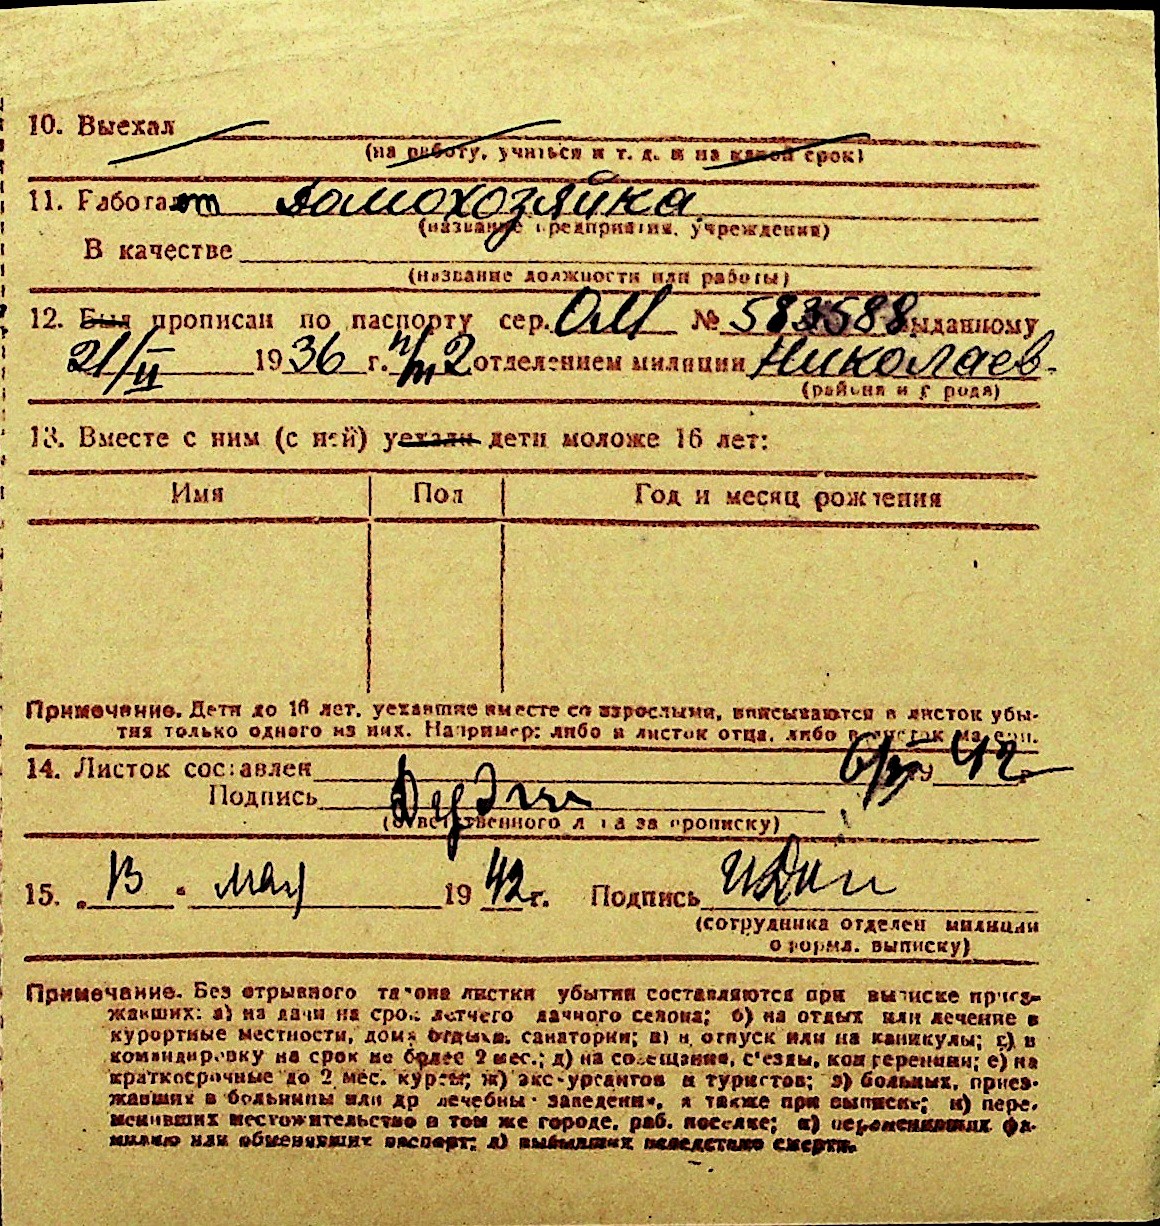 10. Выехал
(на работу, учиться и т. д. и на какой срок)
11. Работает Домохозяйка
(название предприятия, учреждения)
В качестве
(название должности или работы)
12. Был прописан по паспорту сер. ОМ № 583588 выданному
21/II 1936 г. 2 отделением милиции Николаев.
(района и города)
13. Вместе с ним (с ней) уехали дети моложе 16 лет:
Имя Пол Год и месяц рождения
Примечание. Дети до 16 лет, уехавшие вместе со взрослыми, вписываются в листок убы-
тия только одного из них. Например: либо в листок отца, либо в листок матери.
14. Листок составлен 19 42 г.
Подпись
(ответственного лица за прописку)
15. „13 “ мая 19 42 г. Подпись
(сотрудника отделен. милиции
оформл. выписку)
Примечание. Без отрывного талона листки убытия составляются при выписке приез-
жавших: а) на дачи на срок летнего дачного сезона; б) на отдых или лечение в
курортные местности, дома отдыха, санатории; в) в отпуск или на каникулы; г) в
командировку на срок не более 2 мес.; д) на совещания, с'езды, конференции; е) на
краткосрочные до 2 мес. курсы; ж) экскурсантов и туристов; з) больных, приез-
жавших в больницы или др лечебны заведения, а также при выписке; и) пере-
менивших местожительство в том же городе, раб. поселке; к) переменивших фа-
милию или обменявших паспорт; л) выбывших вследствие смерти.